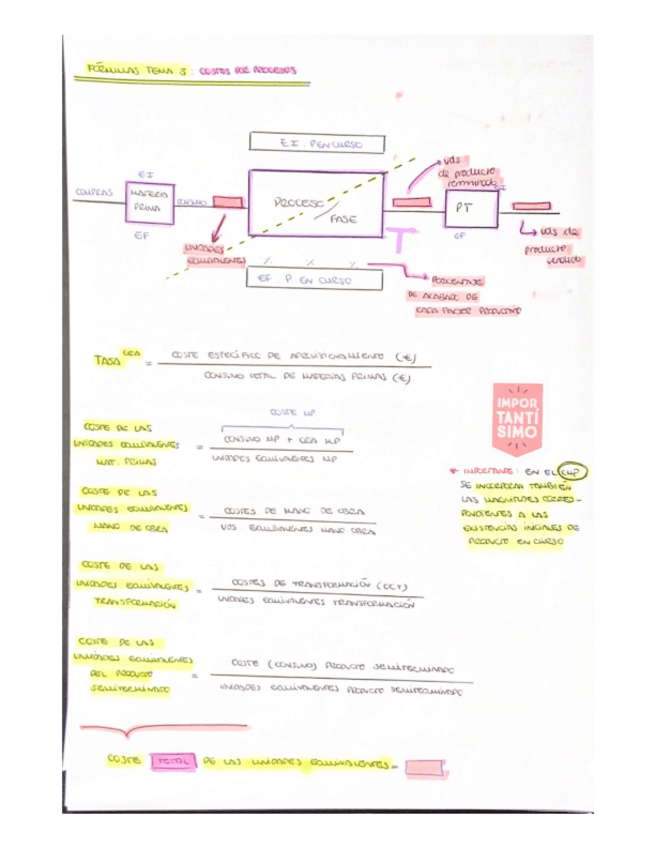 FÓRMULAS TEMA 3: COSTES POR PROCESOS
E.I. P.EN CURSO
uds
de producto
terminado
EI
COMPRAS
MATERIA
PRIMA
CONSUMO
PROCESO
FASE
EI
PT
EF
EF
UNIDADES
EQUIVALENTES
T
uds de
producto
vendido
% % %
EF. P EN CURSO
PORCENTAJE
DE ACABADO DE
CADA FACTOR PRODUCTIVO
TASA CEA = COSTE ESPECÍFICO DE APROVISIONAMIENTO (€)
CONSUMO TOTAL DE MATERIAS PRIMAS (€)
IMPOR
TANTÍ
SIMO
COSTE MP
COSTE DE LAS
UNIDADES EQUIVALENTES
MAT. PRIMAS
= CONSUMO MP + CEA MP
UNIDADES EQUIVALENTES MP
* IMPORTANTE: EN EL CMP
SE INCORPORAN TAMBIÉN
LAS MAGNITUDES CORRES-
PONDIENTES A LAS
EXISTENCIAS INICIALES DE
PRODUCTO EN CURSO
COSTE DE LAS
UNIDADES EQUIVALENTES
MANO DE OBRA
= COSTES DE MANO DE OBRA
UDS EQUIVALENTES MANO OBRA
COSTE DE LAS
UNIDADES EQUIVALENTES
TRANSFORMACIÓN
= COSTES DE TRANSFORMACIÓN (CCT)
UNIDADES EQUIVALENTES TRANSFORMACIÓN
COSTE DE LAS
UNIDADES EQUIVALENTES
DEL PRODUCTO
SEMITERMINADO
= COSTE (CONSUMO) PRODUCTO SEMITERMINADO
UNIDADES EQUIVALENTES PRODUCTO SEMITERMINADO
COSTE TOTAL DE LAS UNIDADES EQUIVALENTES =